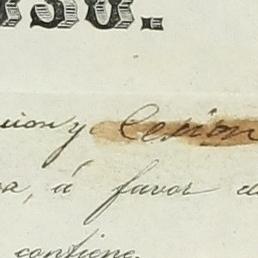 cion y Cesion
a, á favor d
contiene.